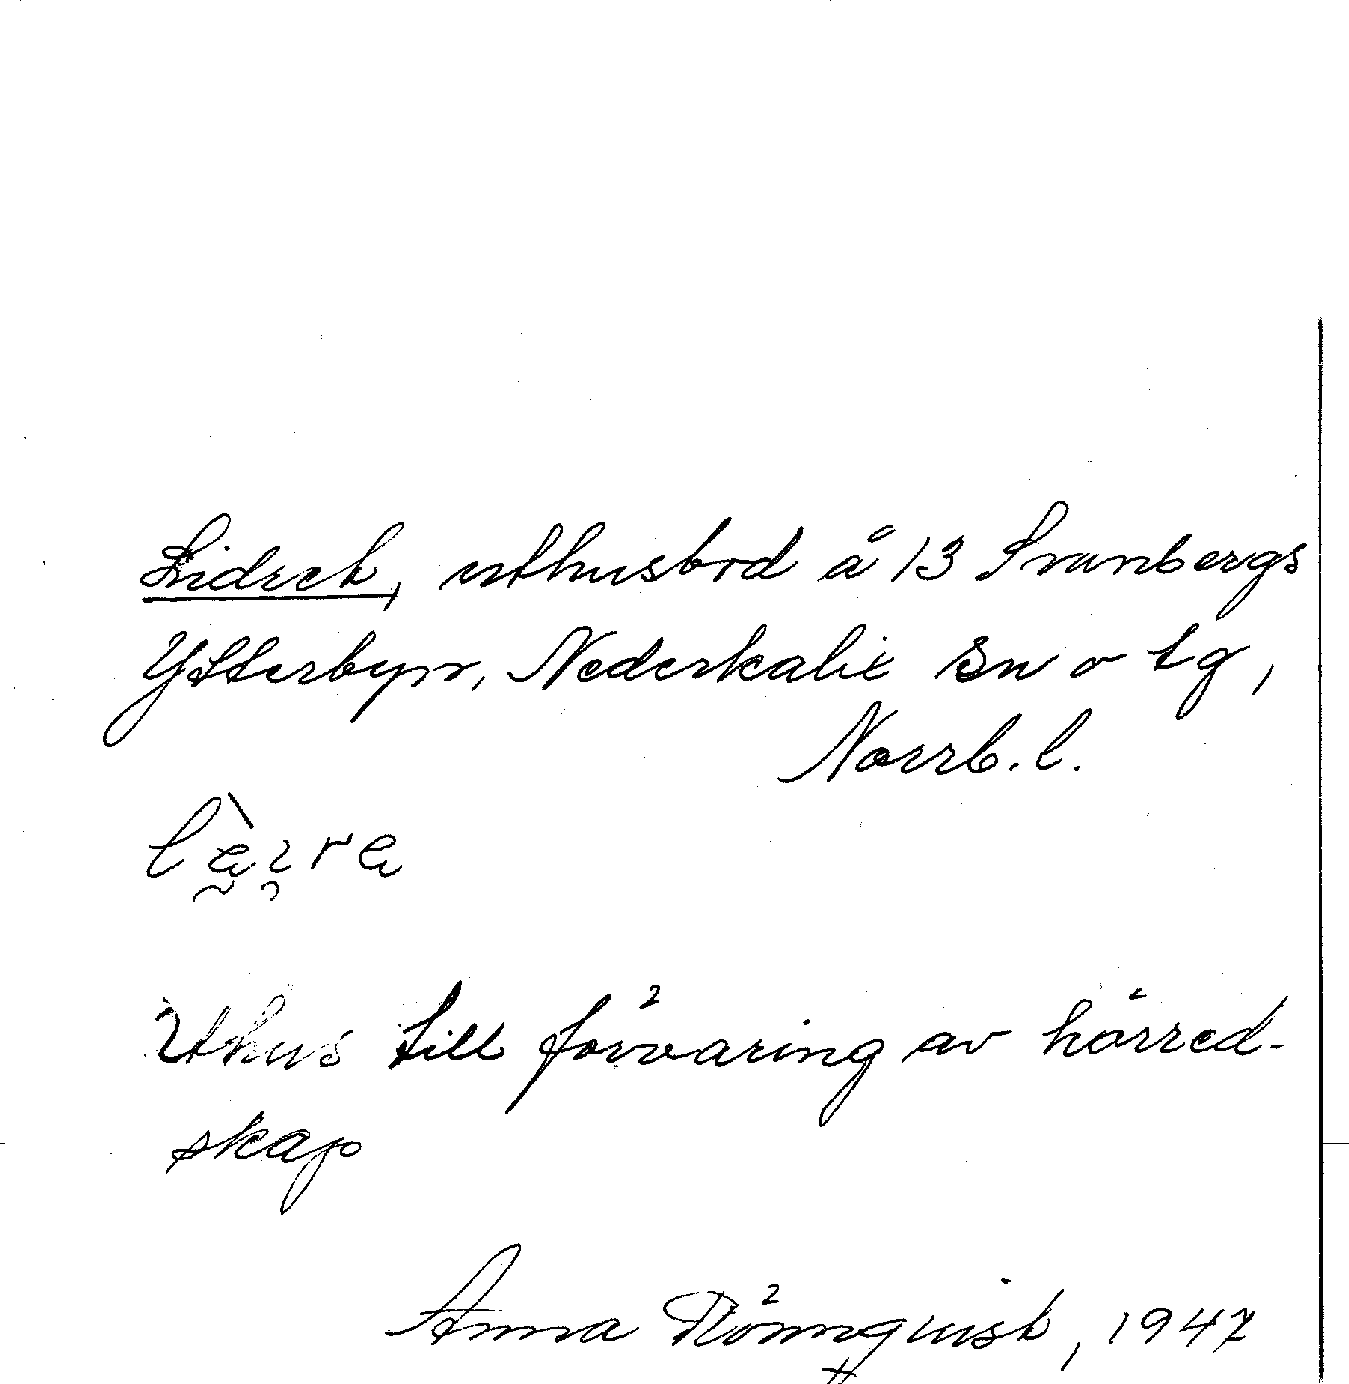 Lidret, uthusbod å 13 Svanbergs
Ytterbyn, Nederkalix sn o tg,
Norrb. l.
Uthus till förvaring av hörred-
skap
Anna Rönnquist, 1947